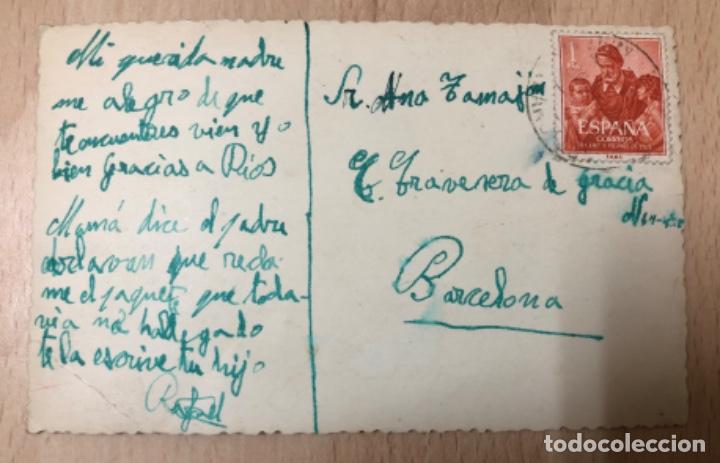 Mi querida madre
me alegro de que
te encuentres vien yo
bien Gracias a Dios
Mamá dice el padre
que
me el paquete que toda-
via no ha llegado
te la escrive tu hijo
Rafael
Sr. Ana Tamajón
C. Travesera de Gracia
Barcelona
1
ESPAÑA
CORREOS
todocoleccion.net